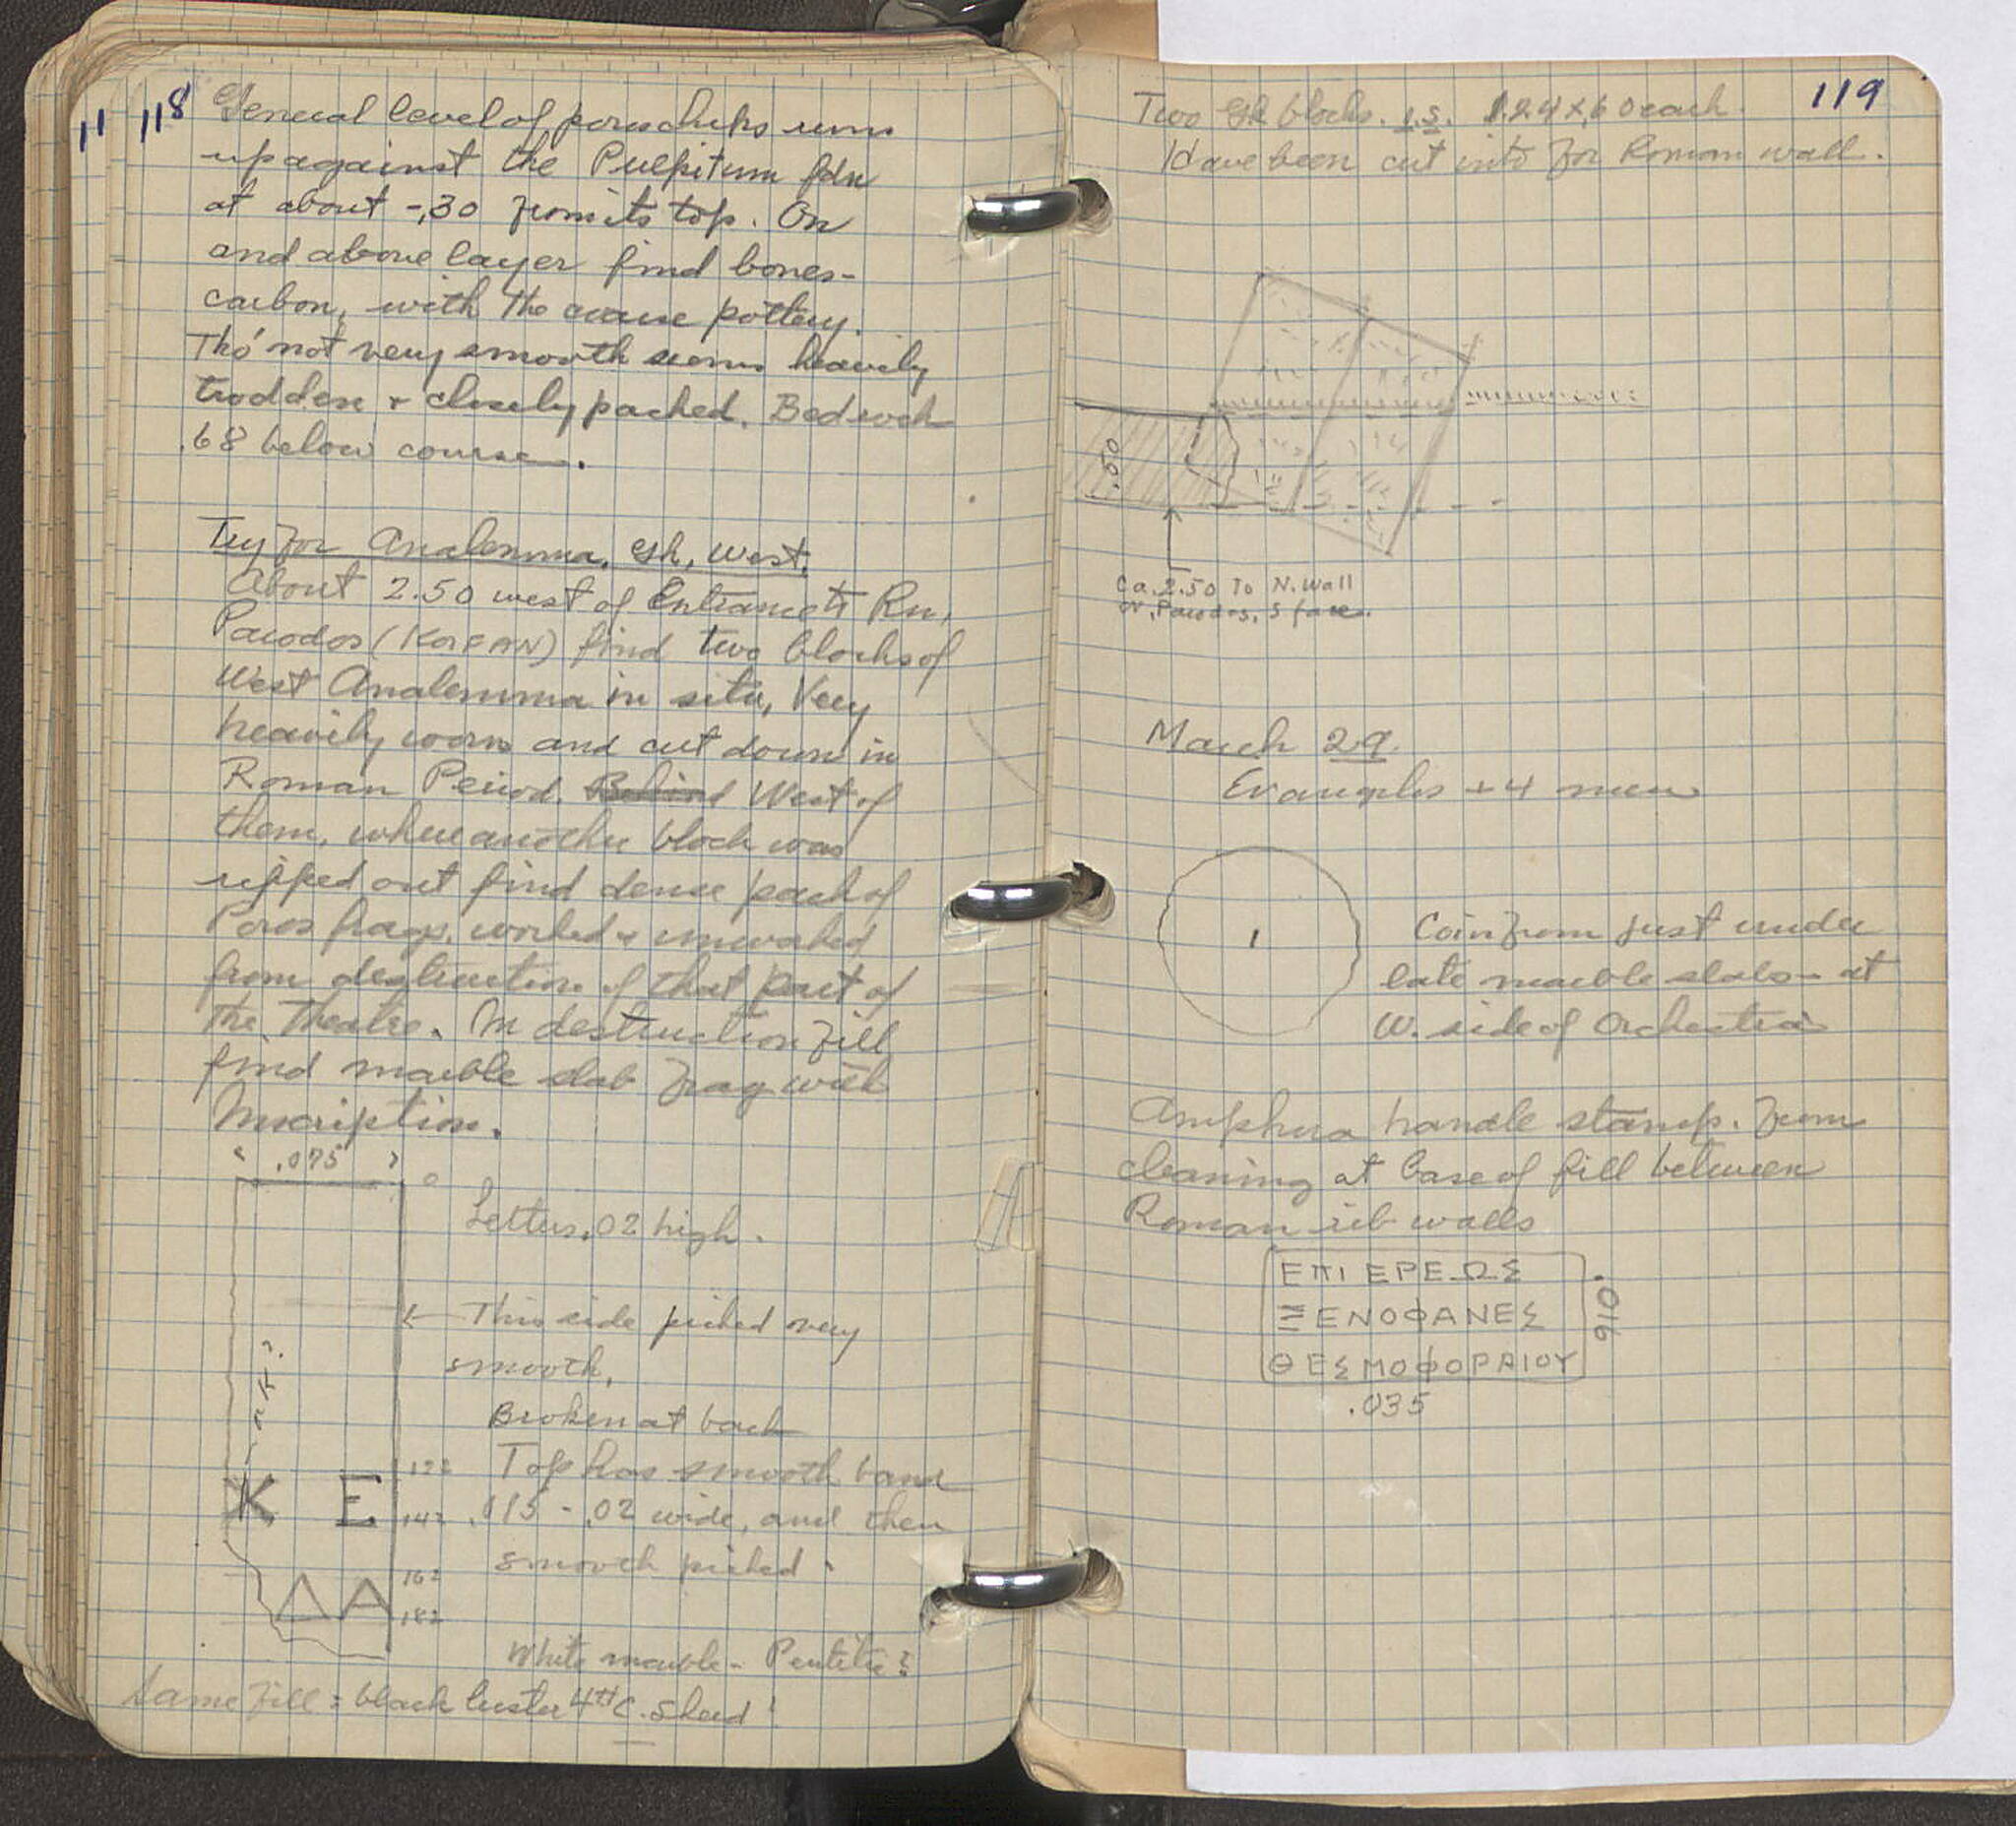 11 118
General level of poros chips runs
up against the Pulpitum fdn
at about -.30 from its top. On
and above layer find bones-
carbon, with the coarse pottery.
Tho' not very smooth seems heavily
trodden + closely packed. Bedrock
.68 below course.
Try for Analemma, Gk, West.
About 2.50 west of Entrance to Rn.
Parodos find two blocks of
West Analemma in situ, Very
heavily worn and cut down in
Roman Period. Behind West of
them, where another block was
ripped out find dense pack of
Poros frags, worked & unworked
from destruction of that part of
the Theatre. In destruction fill
find marble slab frag with
Inscription.
.075
0
Letters .02 high.
This side picked very
smooth,
Broken at back
Top has smooth band
.015 - .02 wide, and then
smooth picked.
brk?
K E
ΔΑ
122
142
162
182
White marble - Pentelic?
Same fill = black luster 4th C. Sherd!
119
Two Gk blocks. I.S. 1.24 x .60 each.
Have been cut into for Roman wall.
.50
Ca. 2.50 To N. Wall
W. Parodos, S face.
March 29
Evangelos + 4 men
1
Coin from just under
late marble slabs - at
W. side of Orchestra
Amphora handle stamp. From
cleaning at base of fill between
Roman rib walls
ΕΠΙ ΕΡΕΩΣ
ΞΕΝΟΦΑΝΕΣ
ΘΕΣΜΟΦΟΡΑΙΟΥ
.016
.035